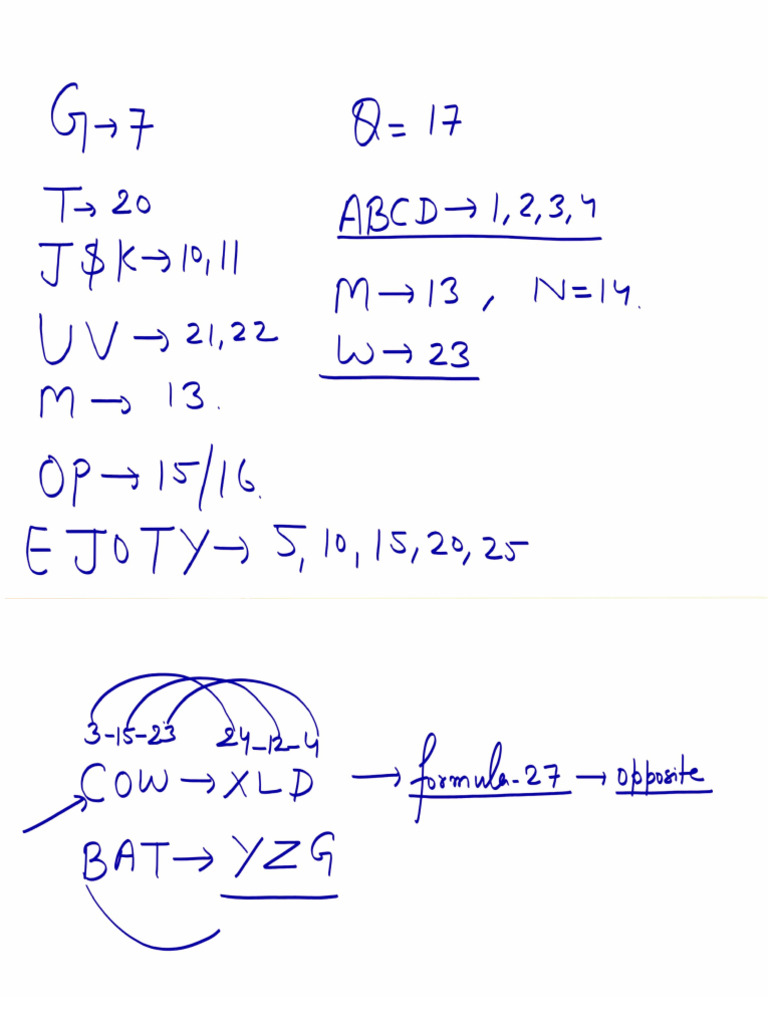 G→7
Q= 17
T→ 20
ABCD→1,2,3,4
J$K→10,11
M→13, N=14.
UV→21,22
W→23
M→ 13.
OP→15/16.
EJOTY→ 5, 10, 15, 20, 25
3-15-23 24-12-4
COW→XLD →formula-27→opposite
BAT→YZG